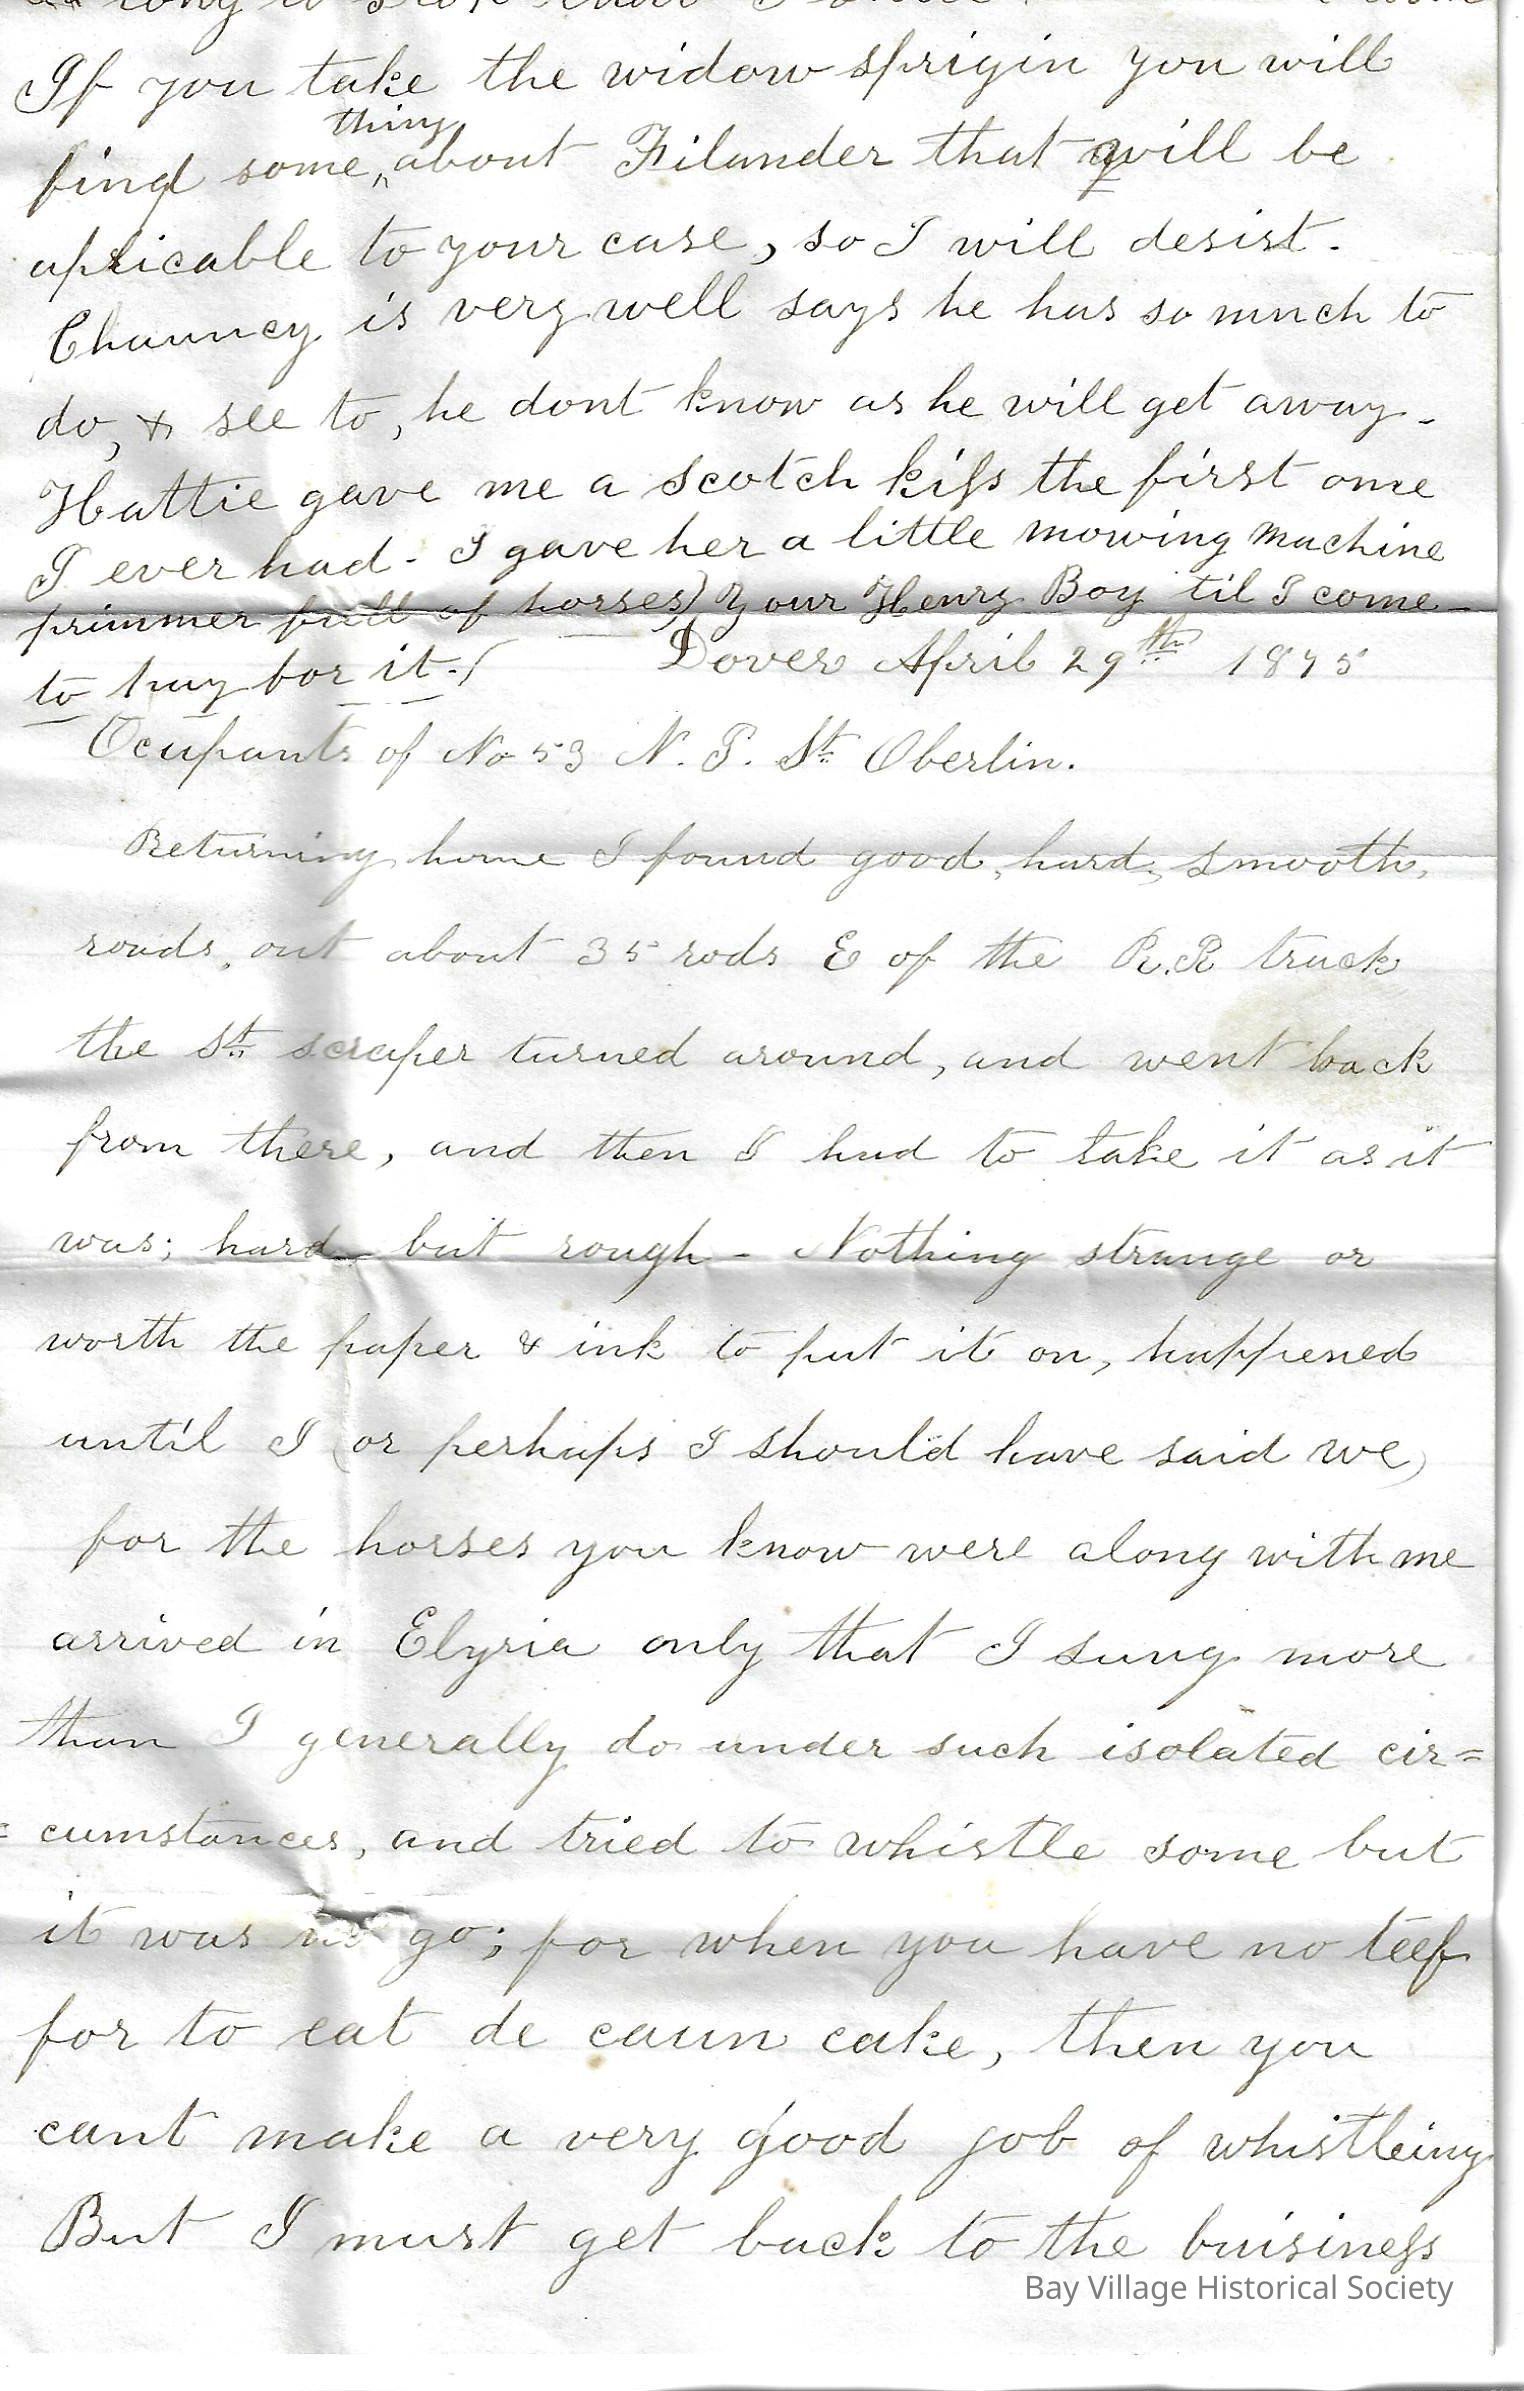 If you take the widow sprigin you will
thing
find some, about Filander that will be
aplicable to your case, so I will desist.
Chauncy is very well says he has so much to
do, & see to, he dont know as he will get away -
Hattie gave me a scotch kiss the first one
I ever had - I gave her a little mowing machine
primmer full of horses) Your Henry Boy til I come -
to pay for it.(
Dover April 29th 1875
Ocupants of No 53 N. P. St. Oberlin.
Returning home I found good, hard, smooth,
roads, out about 35 rods E of the R.R track
the St. scraper turned around, and went back
from there, and then I had to take it as it
was; hard but rough - Nothing strange or
worth the paper & ink to put it on, happened
until I (or perhaps I should have said we)
for the horses you know were along with me
arrived in Elyria only that I sung more
than I generally do under such isolated cir=
=cumstances, and tried to whistle some but
it was no go; for when you have no teef
for to eat de caun cake, then you
cant make a very good job of whistleing
But I must get back to the buisiness
Bay Village Historical Society